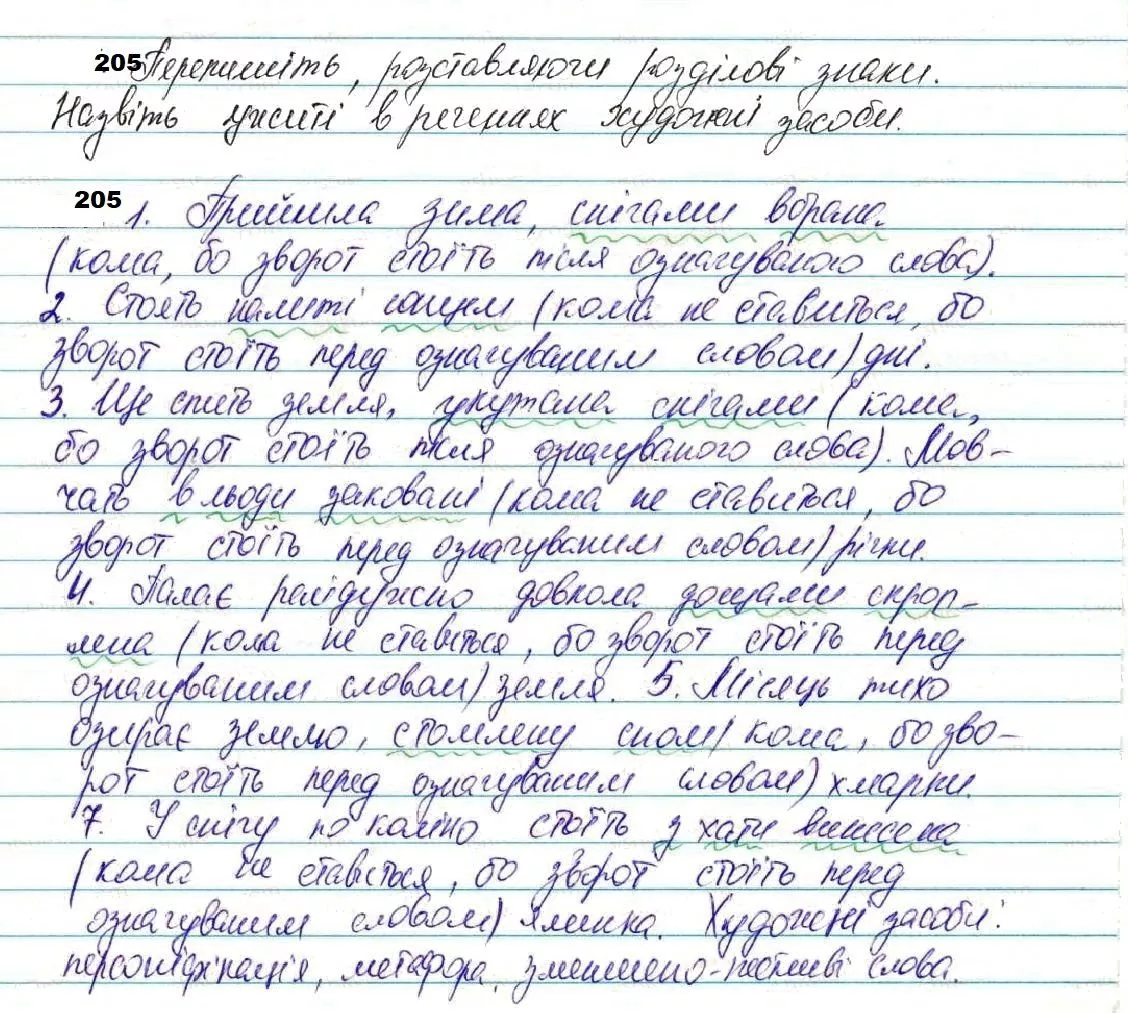 205 Перепишіть, розставляючи розділові знаки.
Назвіть ужиті в реченнях художні засоби.
205
1. Прийшла зима, снігами вбрана
(кома, бо зворот стоїть після означуваного слова).
2. Стоять налиті сонцем (кома не ставиться, бо
зворот стоїть перед означуваним словом) дні.
3. Ще спить земля, укутана снігами (кома,
бо зворот стоїть після означуваного слова). Мов-
чать в льоди заковані (кома не ставиться, бо
зворот стоїть перед означуваним словом) річки.
4. Палає райдужно довкола дощами скроп-
лена (кома не ставиться, бо зворот стоїть перед
означуваним словом) земля. 5. Місяць тихо
озирає землю, стомлену сном (кома, бо зво-
рот стоїть перед означуваним словом) хмарки.
7. У снігу по коліно стоїть з хати винесена
(кома не ставиться, бо зворот стоїть перед
означуваним словом) ялинка. Художні засоби:
персоніфікація, метафора, зменшено-пестливі слова.